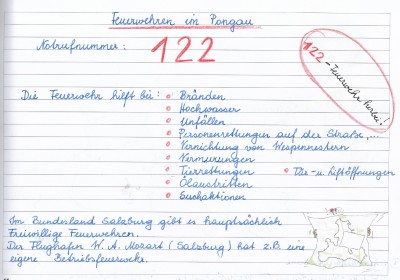 Feuerwehren im Pongau
Notrufnummer: 122
122 - Feuerwehr herbei!
Die Feuerwehr hilft bei: • Bränden
• Hochwasser
• Unfällen
• Personenrettungen auf der Straße,...
• Vernichtung von Wespennestern
• Vermurungen
• Tierrettungen • Tür- u. Liftöffnungen
• Ölaustritten
• Suchaktionen
Im Bundesland Salzburg gibt es hauptsächlich
Freiwillige Feuerwehren.
Der Flughafen W. A. Mozart (Salzburg) hat z.B. eine
eigene Betriebsfeuerwehr.